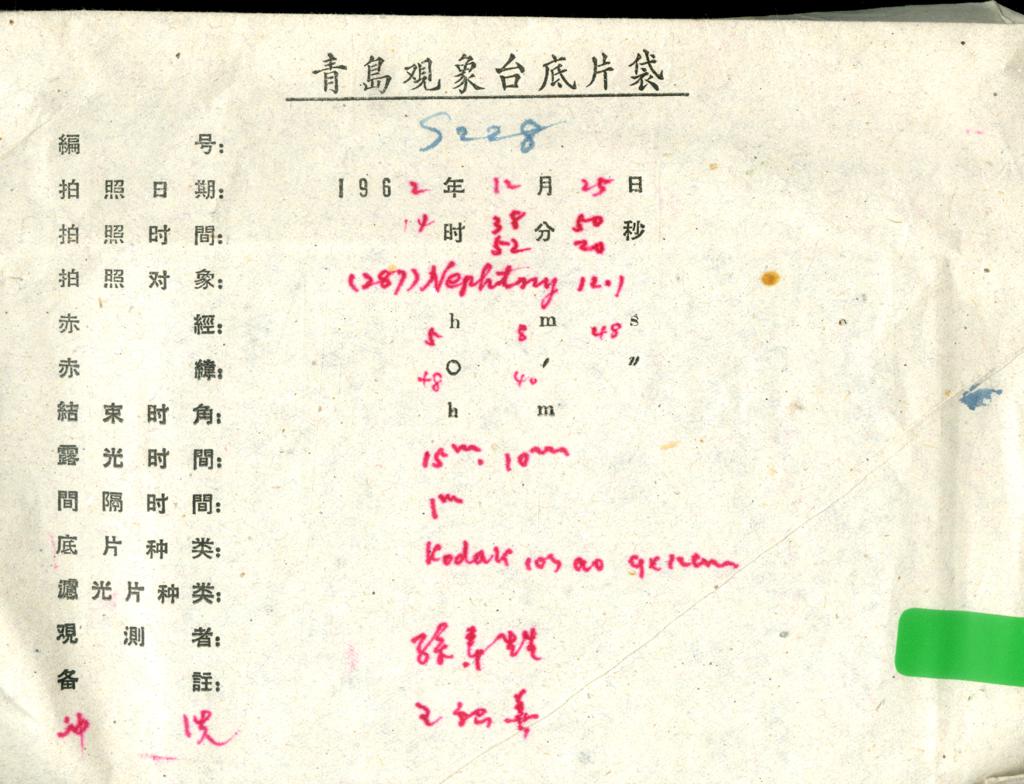 青島观象台底片袋
編号: S228
拍照日期: 1962年12月25日
拍照时間: 14时38分50秒
52 20
拍照对象: (287) Nephtny 12.1
赤經: 5h 8m 48s
赤緯: +8° 40′ ″
結束时角: h m
露光时間: 15m. 10m
間隔时間: 1m
底片种类: Kodak 103 ao 9x12cm
濾光片种类:
观測者: 孫寿
备註:
冲洗 王 善